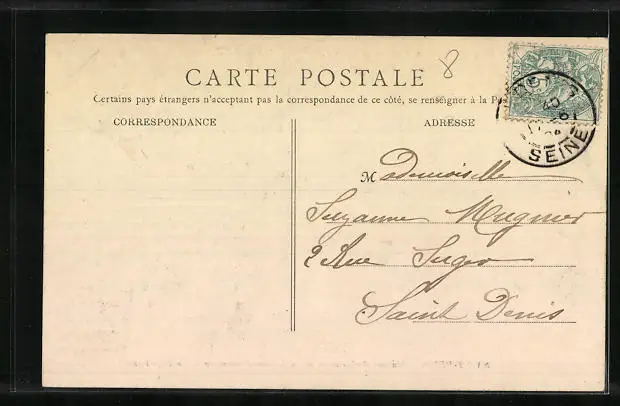 8
CARTE POSTALE
Certains pays étrangers n'acceptant pas la correspondance de ce côté, se renseigner à la
CORRESPONDANCE
ADRESSE
Mademoiselle
Suzanne Mugnier
2 Rue Suger
Saint Denis
SEINE